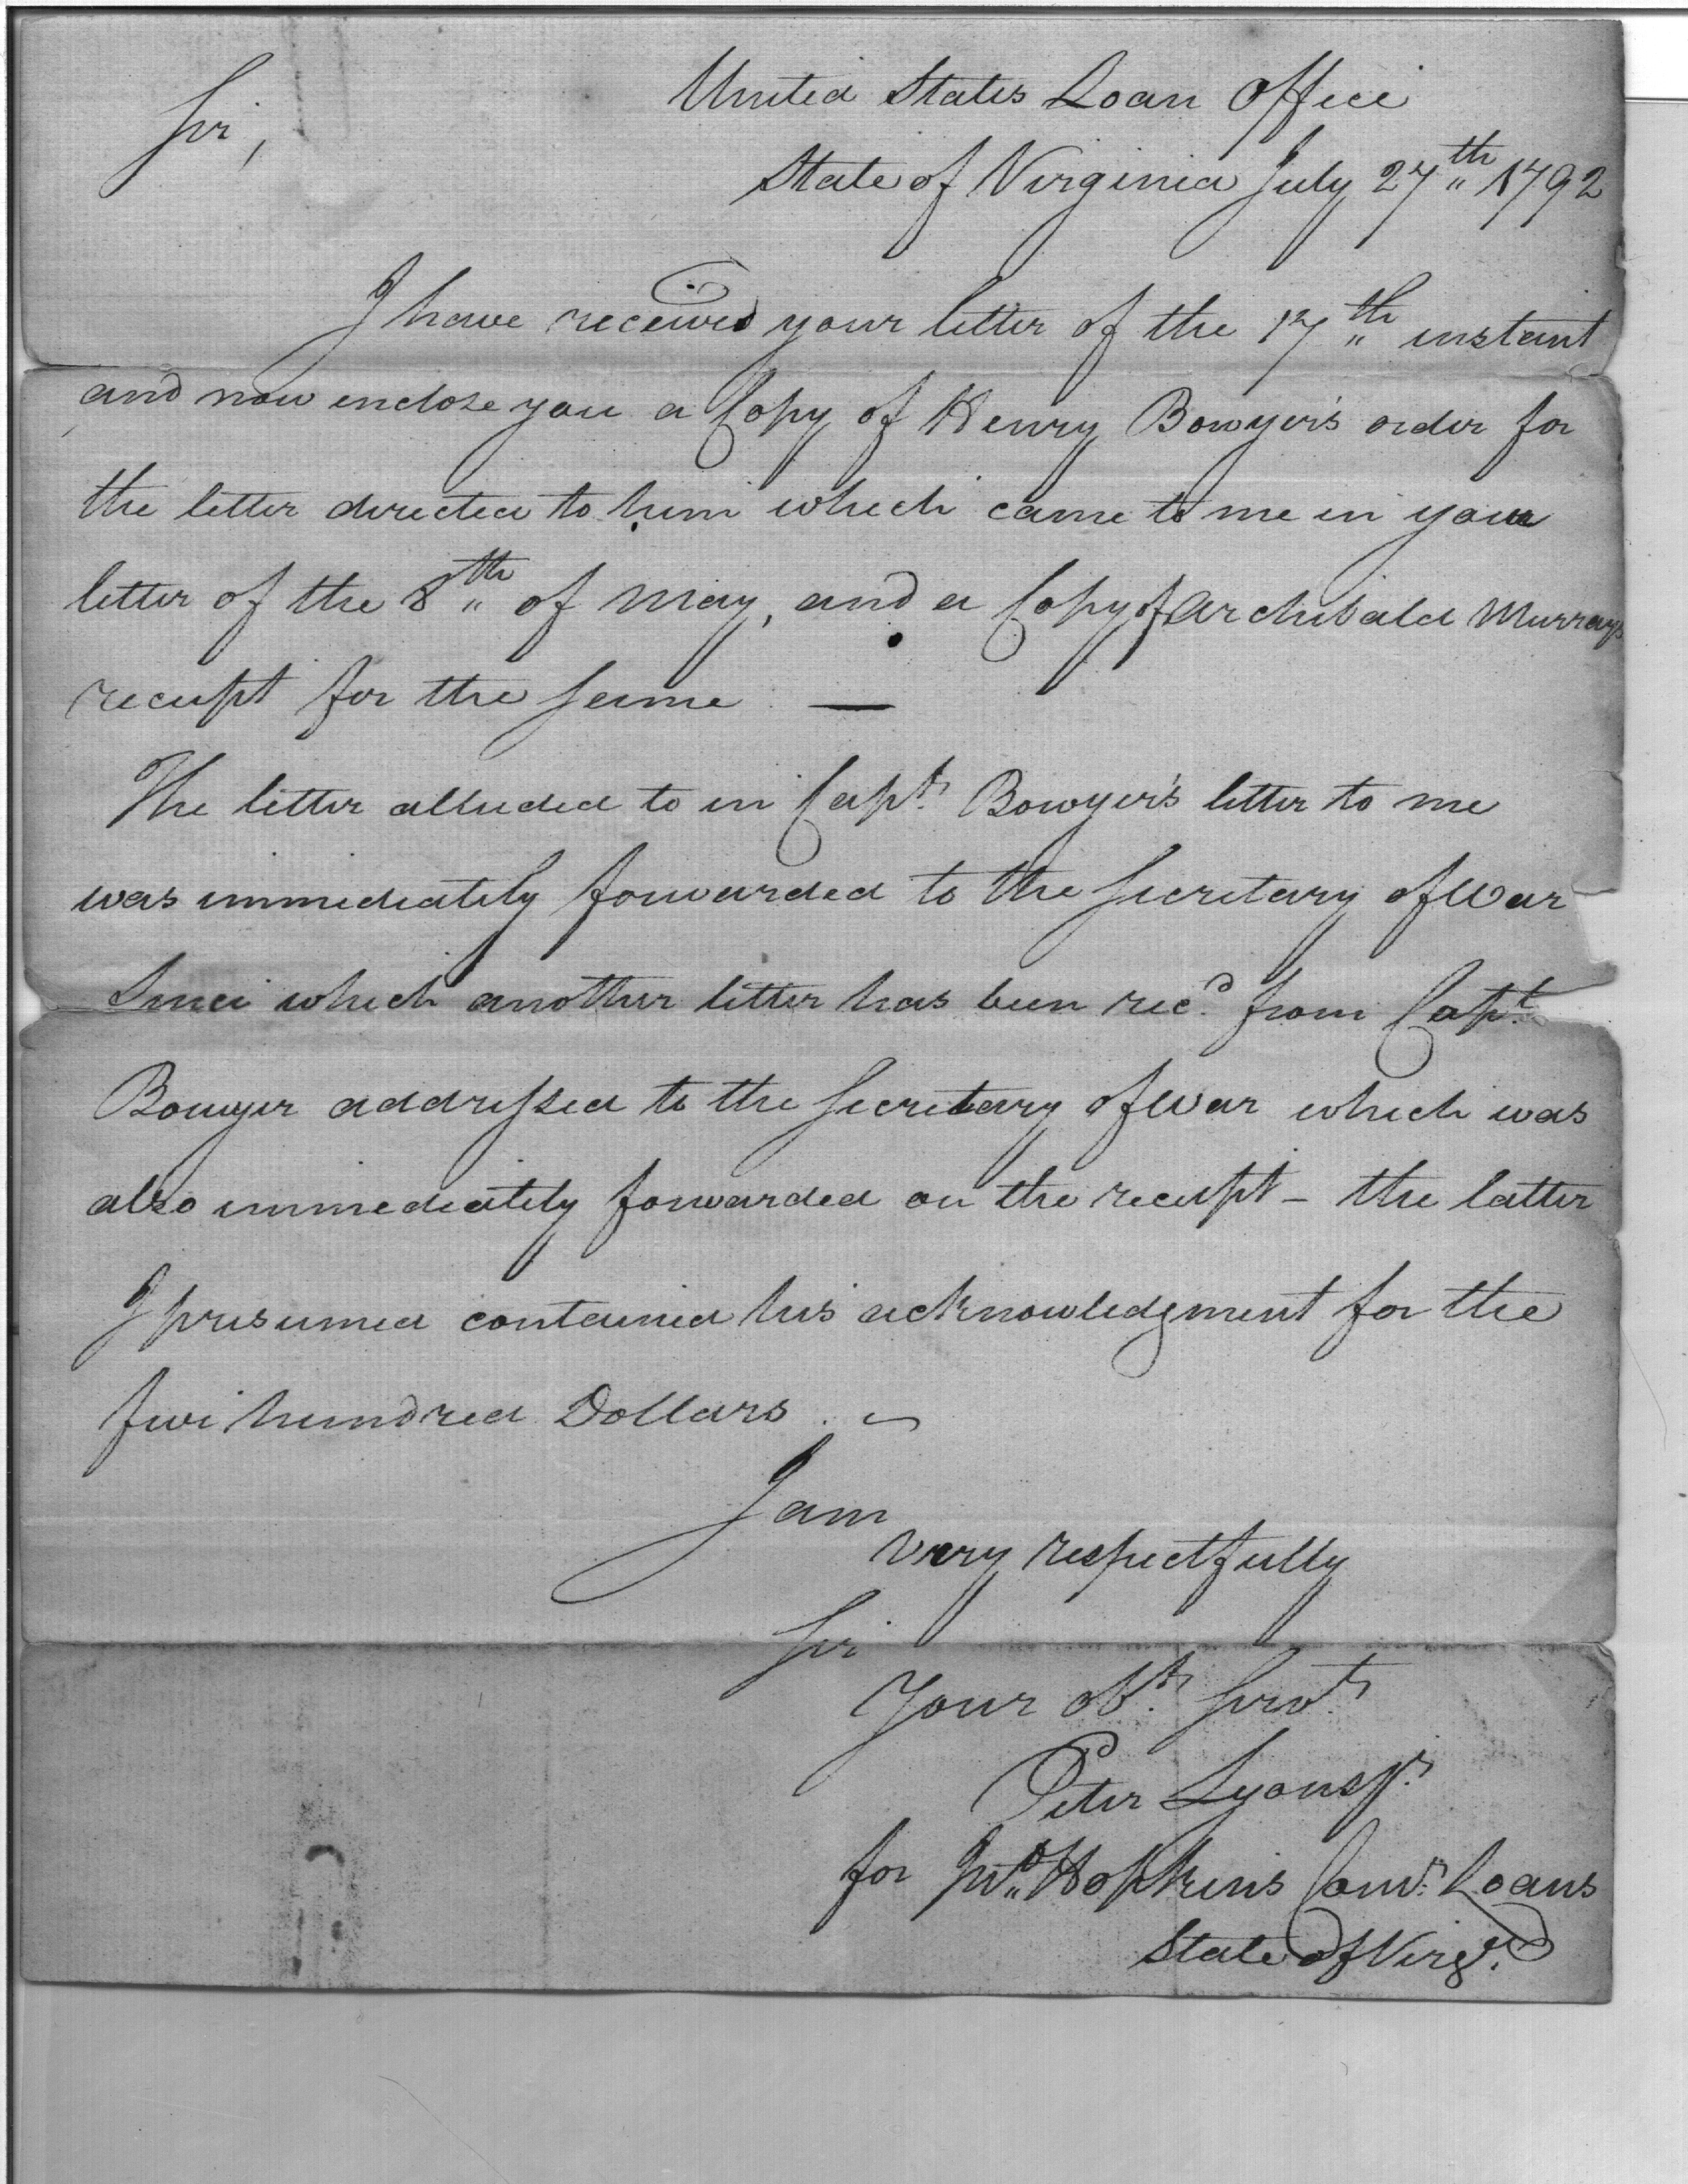 United States Loan Office
Sir,
State of Virginia July 27th 1792
I have received your letter of the 17th instant
and now enclose you a Copy of Henry Bowyer's order for
the letter directed to him which came to me in your
letter of the 8th of May, and a Copy of Archibald Murrays
receipt for the same —
The letter alluded to in Capt. Bowyer's letter to me
was immediately forwarded to the Secretary of War
Since which another letter has been rec'd. from Capt.
Bowyer addressed to the Secretary of War which was
also immediately forwarded on the receipt - the latter
I presumed contained his acknowledgment for the
five hundred Dollars. ~
I am
very respectfully
Sir
Your obt. Servt.
Peter Lyons Jr.
for Jno. Hopkins Comr. Loans
State of Virga.